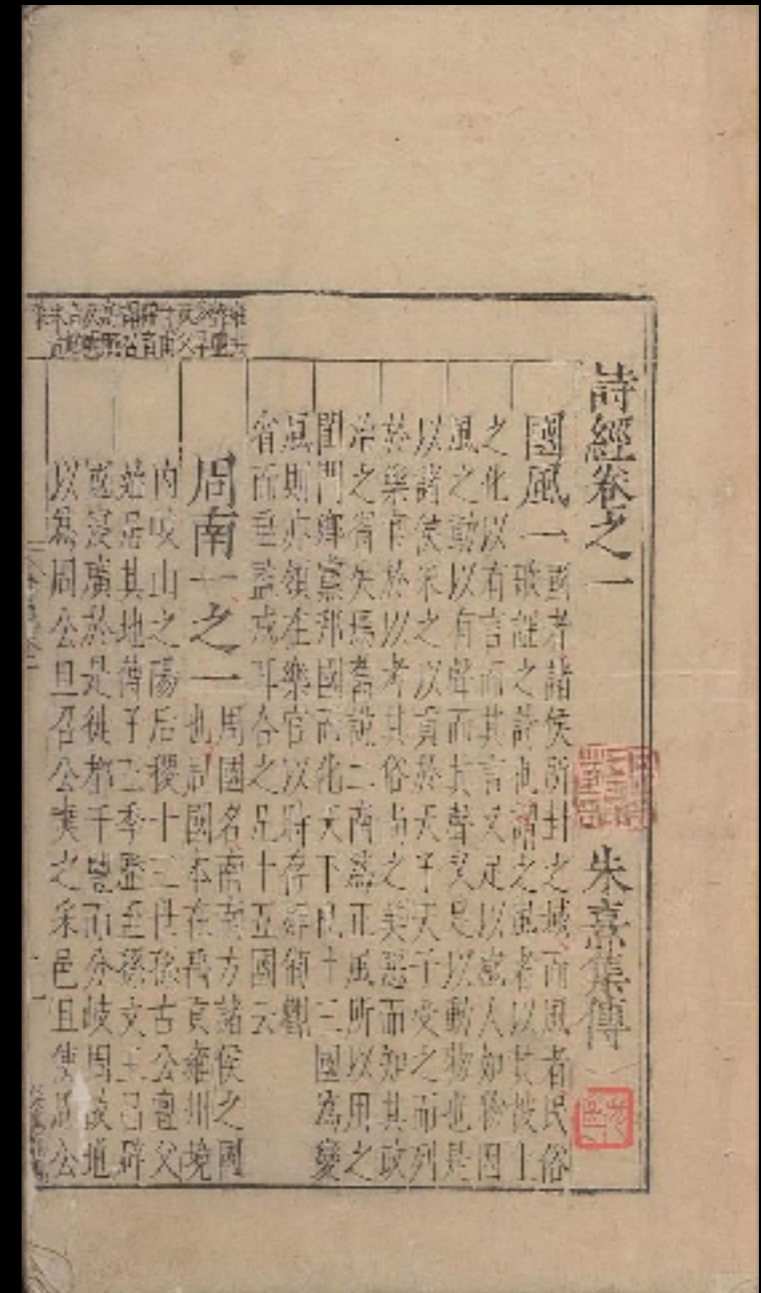 詩經卷之一 朱熹集傳
國風一 國者諸侯所封之域而風者民俗
歌謠之詩也謂之風者以其被上
之化以有言而其言又足以感人如物因
風之動以有聲而其聲又足以動物也是
以諸侯采之以貢於天子天子受之而列
於樂官於以考其俗尚之美惡而知其政
治之得失焉舊說二南為正風所以用之
閨門鄉黨邦國而化天下也十三國為變
風則亦領在樂官以時存肄備觀
省而垂監戒耳合之凡十五國云
周南一之一 周國名南南方諸侯之國
也周國本在禹貢雍州境
內岐山之陽后稷十三世孫古公亶父
始居其地傳子王季歷至孫文王昌辟
國寖廣於是徙都于豐而分岐周故地
以為周公旦召公奭之采邑且使周公